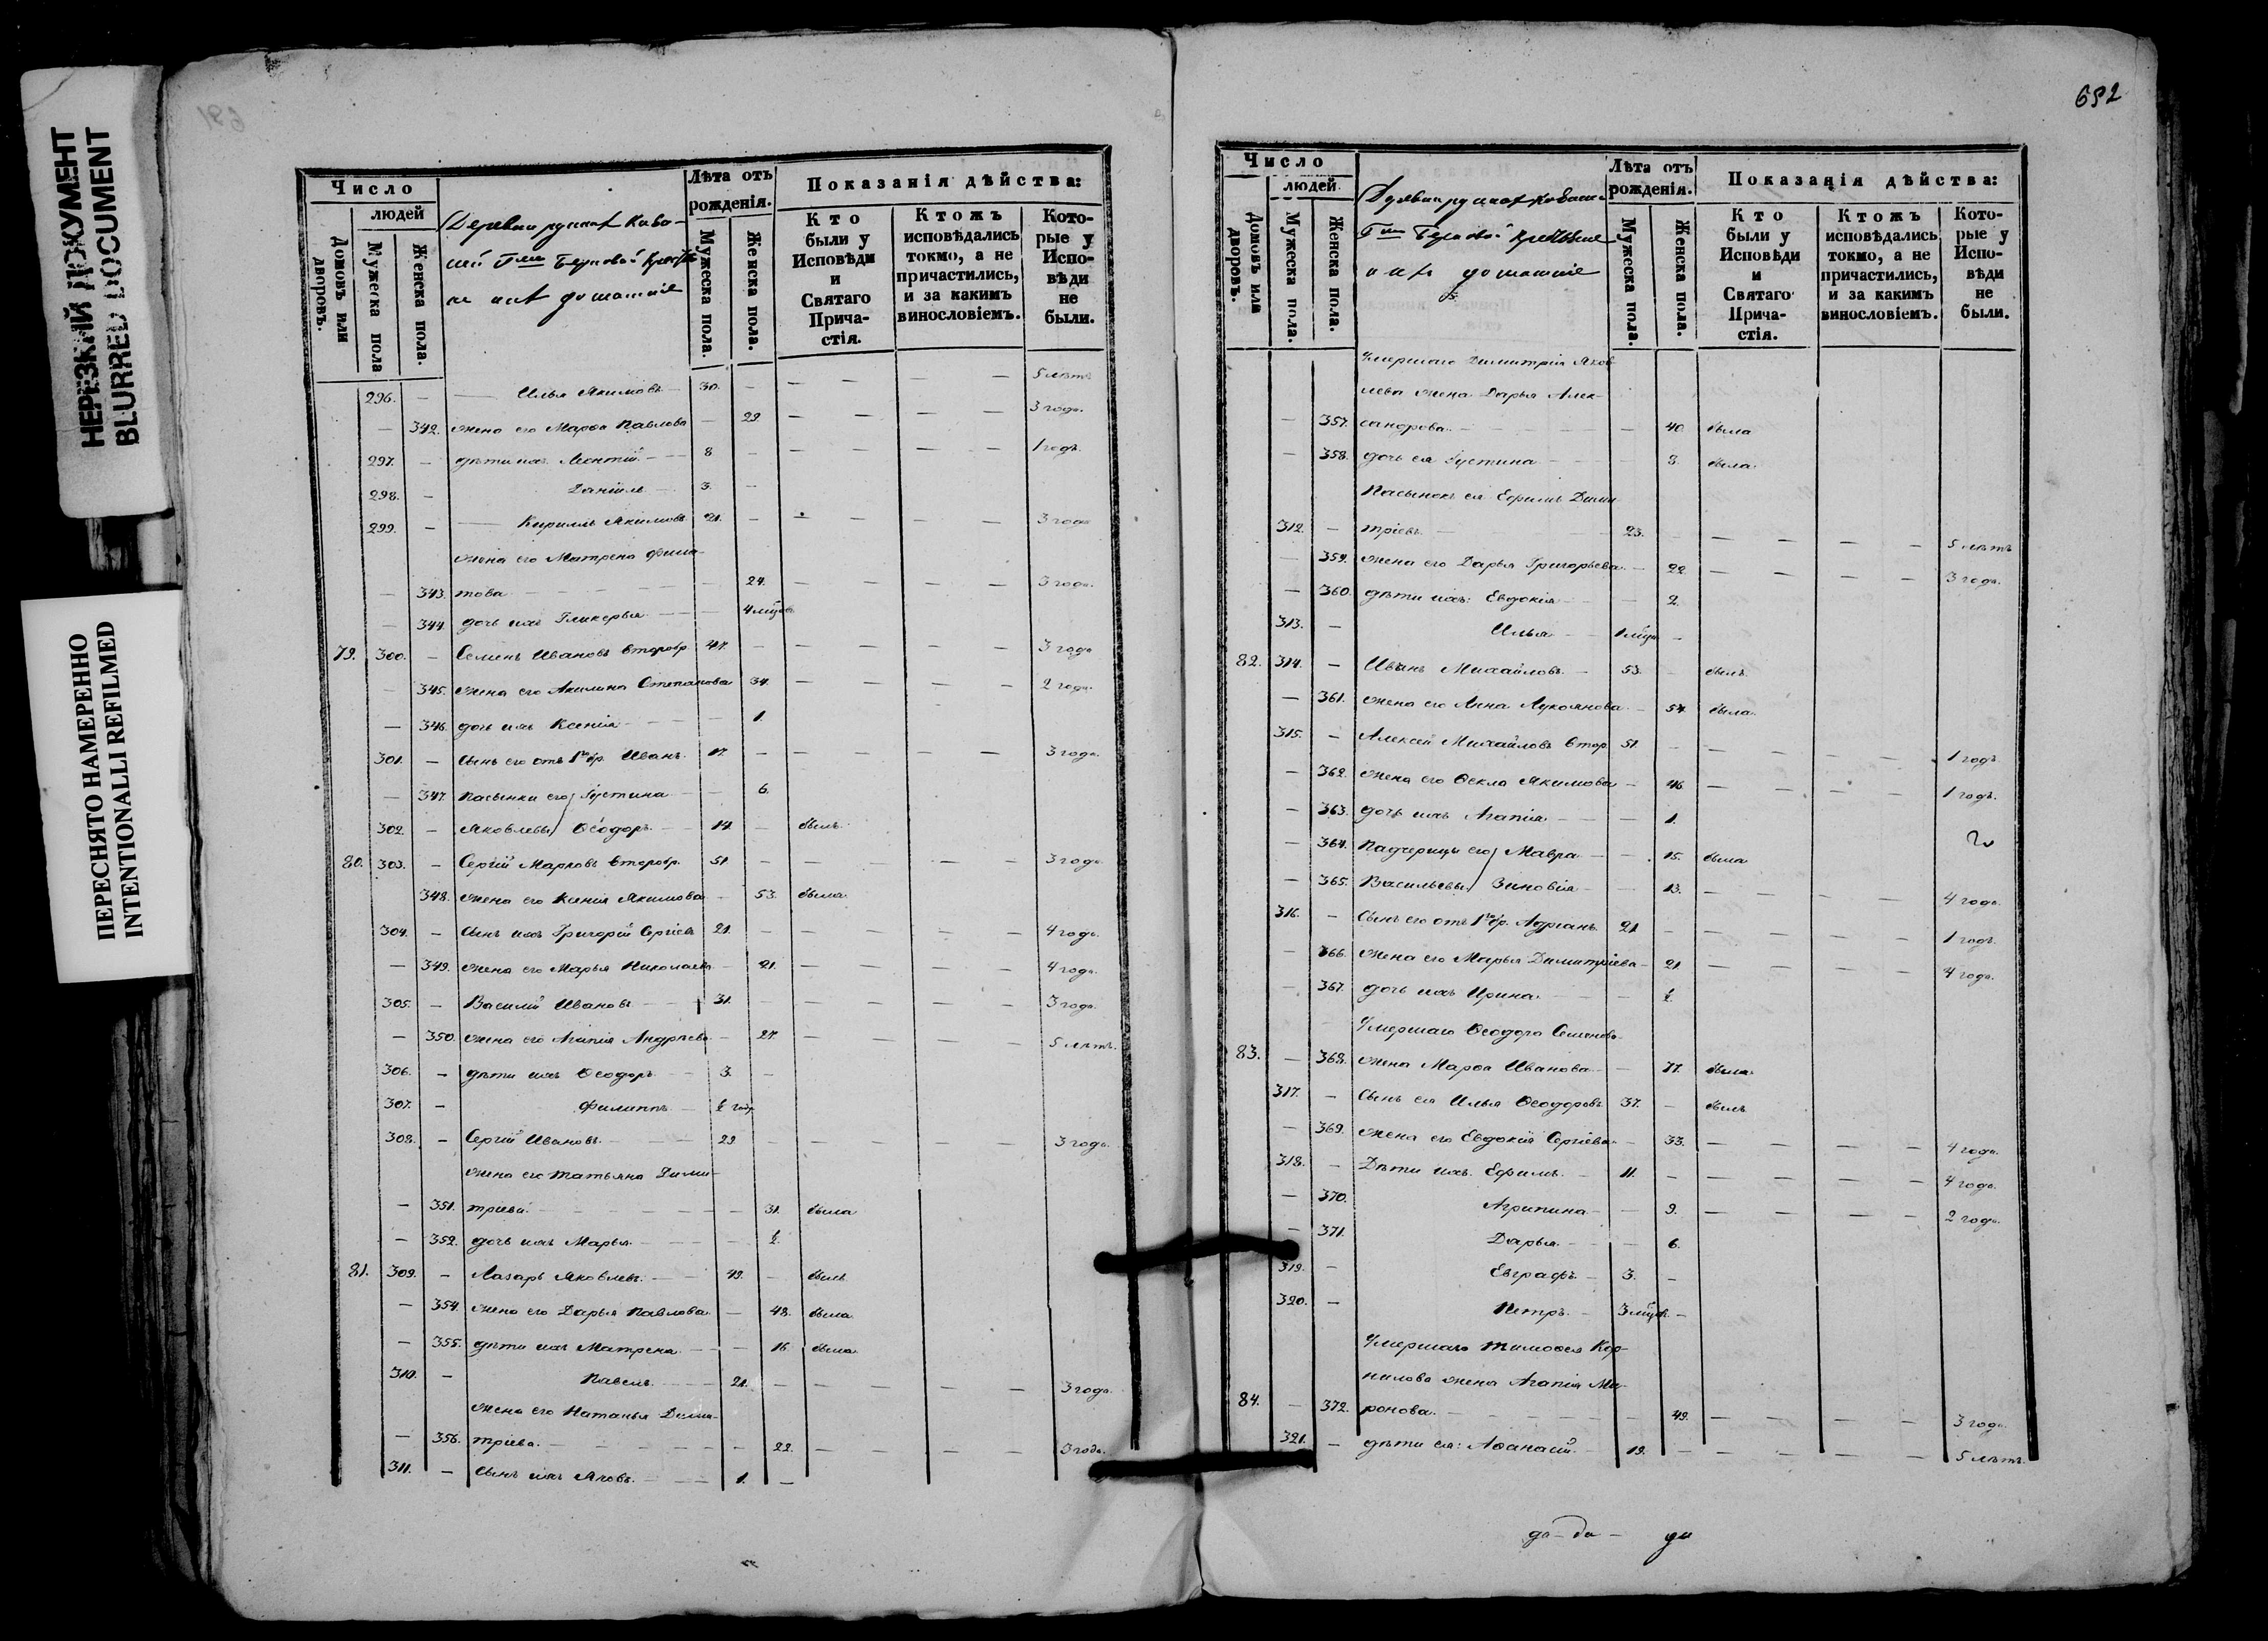 НЕРЕЗКИЙ ДОКУМЕНТ
BLURRED DOCUMENT
ПЕРЕСНЯТО НАМЕРЕННО
INTENTIONALLI REFILMED
691
Число
людей
Домовъ или дворовъ.
Мужеска пола
Женска пола.
Деревни
домашніе
Лѣта отъ рожденія.
Мужеска пола.
Женска пола.
Показанія дѣйства:
Кто были у Исповѣди и Святаго Причастія.
Ктожъ исповѣдались токмо, а не причастились, и за какимъ винословіемъ.
Которые у Исповѣди не были.
296. — Илья Якимовъ 30. — — — — — 5 лѣтъ
— 342. жена его Марѳа Павлова — 29. — — — — 3 года.
297. — дѣти ихъ Леонтій 8 — — — — — 1 годъ.
298. — Даніилъ 3. —
299. — Кирилъ Якимовъ 21. — — — — — 3 года
жена его Матрена Фила-
— 343. това — 24. — — — — 3 года.
— 344. дочь ихъ Гликерья — 4 мѣсяц
79. 300. — Семенъ Иванова второбр 47. — — — — — 3 года
— 345. жена его Акилина Степанова 34. — — — — 2 года.
— 346. дочь ихъ Ксенія — 1.
301. — сынъ его отъ 1го бр. Иванъ. 17. — — — — — 3 года.
— 347. пасынки его Іустина — 6.
302. — Яковлевы Ѳеодоръ 14. — былъ
80. 303. — Сергій Марковъ второбр. 51. — — — — — 3 года
348. жена его Ксенія Якимова — 53. была
304. — сынъ ихъ Григорій Сергіевъ 21. — — — — — 4 года.
— 349. жена его Марья Николаева — 21. — — — 4 года.
305. — Василій Ивановъ 31. — — — — — 3 года.
— 350. жена его Агапія Андрѣева — 27. — — — — 5 лѣтъ.
306. — дѣти ихъ Ѳеодоръ 3. —
307. — Филиппъ ½ года
308. — Сергій Ивановъ 29 — — — — — 3 года.
жена его Татьяна Дими-
— 351. тріева — 31. была
— 352. дочь ихъ Марья — ½.
81. 309. — Лазарь Яковлевъ 49. — былъ
— 354. жена его Дарья Павлова — 48. была
— 355. дѣти ихъ Матрена — 16 была
310. — Павелъ 21. — — — — — 3 года.
жена его Наталья Дими-
— 356. тріева. — 22. — — — — 3 года.
311. — сынъ ихъ Яковъ. 1. —
692
Число
людей
Домовъ или дворовъ.
Мужеска пола.
Женска пола.
домашніе
Лѣта отъ рожденія.
Мужеска пола.
Женска пола.
Показанія дѣйства:
Кто были у Исповѣди и Святаго Причастія.
Ктожъ исповѣдались токмо, а не причастились, и за какимъ винословіемъ.
Которые у Исповѣди не были.
Умершаго Димитрія Яков-
лева жена Дарья Алек-
— 357. сандрова. — 40. была
— 358. дочь ея Іустина — 8. была
Пасынокъ ея Ефимъ Дими-
312. — тріевъ. 23. — — — — — 5 лѣтъ
— 359. жена его Дарья Григорьева. — 22. — — — — 3 года.
— 360. дѣти ихъ: Евдокія — 2.
313. — Илья. 1 мѣся —
82. 314. — Иванъ Михайловъ. 53. — былъ.
— 361. жена его Анна Лукоянова — 54. была.
315. — Алексѣй Михайловъ втор. 51. — — — — — 1 годъ.
— 362. жена его Ѳекла Якимова — 46 — — — — 1 годъ.
— 363. дочь ихъ Агапія. — 1.
— 364. Падчерицы его Мавра — 15. была
— 365. Васильевы Зиновія — 13. — — — — 4 года.
316. — сынъ его отъ 1го бр. Адріанъ. 21. — — — — — 1 годъ.
— 366. жена его Марья Димитріева — 21. — — — — 4 года.
— 367. дочь ихъ Ирина. — ½.
Умершаго Ѳеодора Семенова
83. — 368. жена Марѳа Иванова — 77. была
317. — сынъ ея Илья Ѳеодоровъ 37. — былъ
— 369. жена его Евдокія Сергіева — 33. — — — — 4 года.
318. — Дѣти ихъ. Ефимъ. 11. — — — — — 4 года.
— 370. Агрипина — 9. — — — — 2 года.
— 371. Дарья. — 6.
319. — Евграфъ. 3. —
320. — Петръ. 3 мѣсяц. —
Умершаго Тимоѳея Кор-
нилова жена Агапія Ми-
84. — 372. ронова. — 49. — — — — 3 года.
321. — дѣти ея: Аѳанасій. 19. — — — — — 5 лѣтъ.